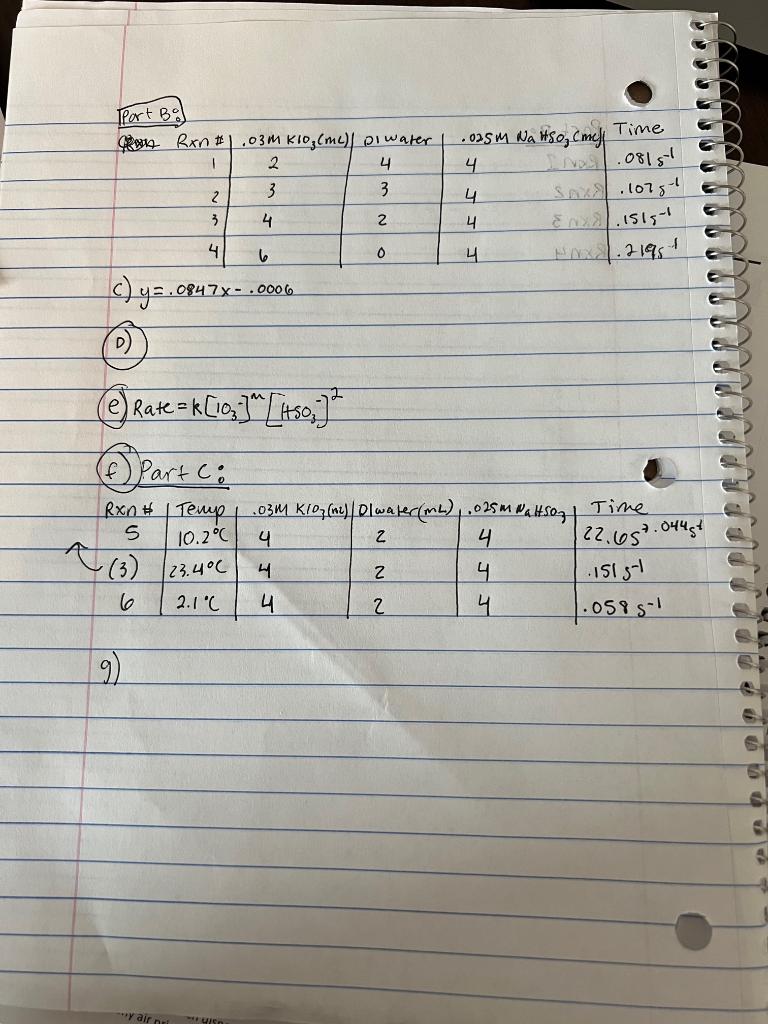 Part B:
Rxn # .03M KIO3(mL) DI water .025M NaHSO3(mL) Time
1 2 4 4 .081 s-1
2 3 3 4 .107 s-1
3 4 2 4 .151 s-1
4 6 0 4 .219 s-1
c) y=.0847x-.0006
D)
e) Rate=k[IO3-]^m [HSO3-]^2
f) Part C:
Rxn # Temp .03M KIO3(mL) DI water(mL) .025M NaHSO3 Time
5 10.2°C 4 2 4 22.6s .044s-1
(3) 23.4°C 4 2 4 .151 s-1
6 2.1°C 4 2 4 .058 s-1
g)